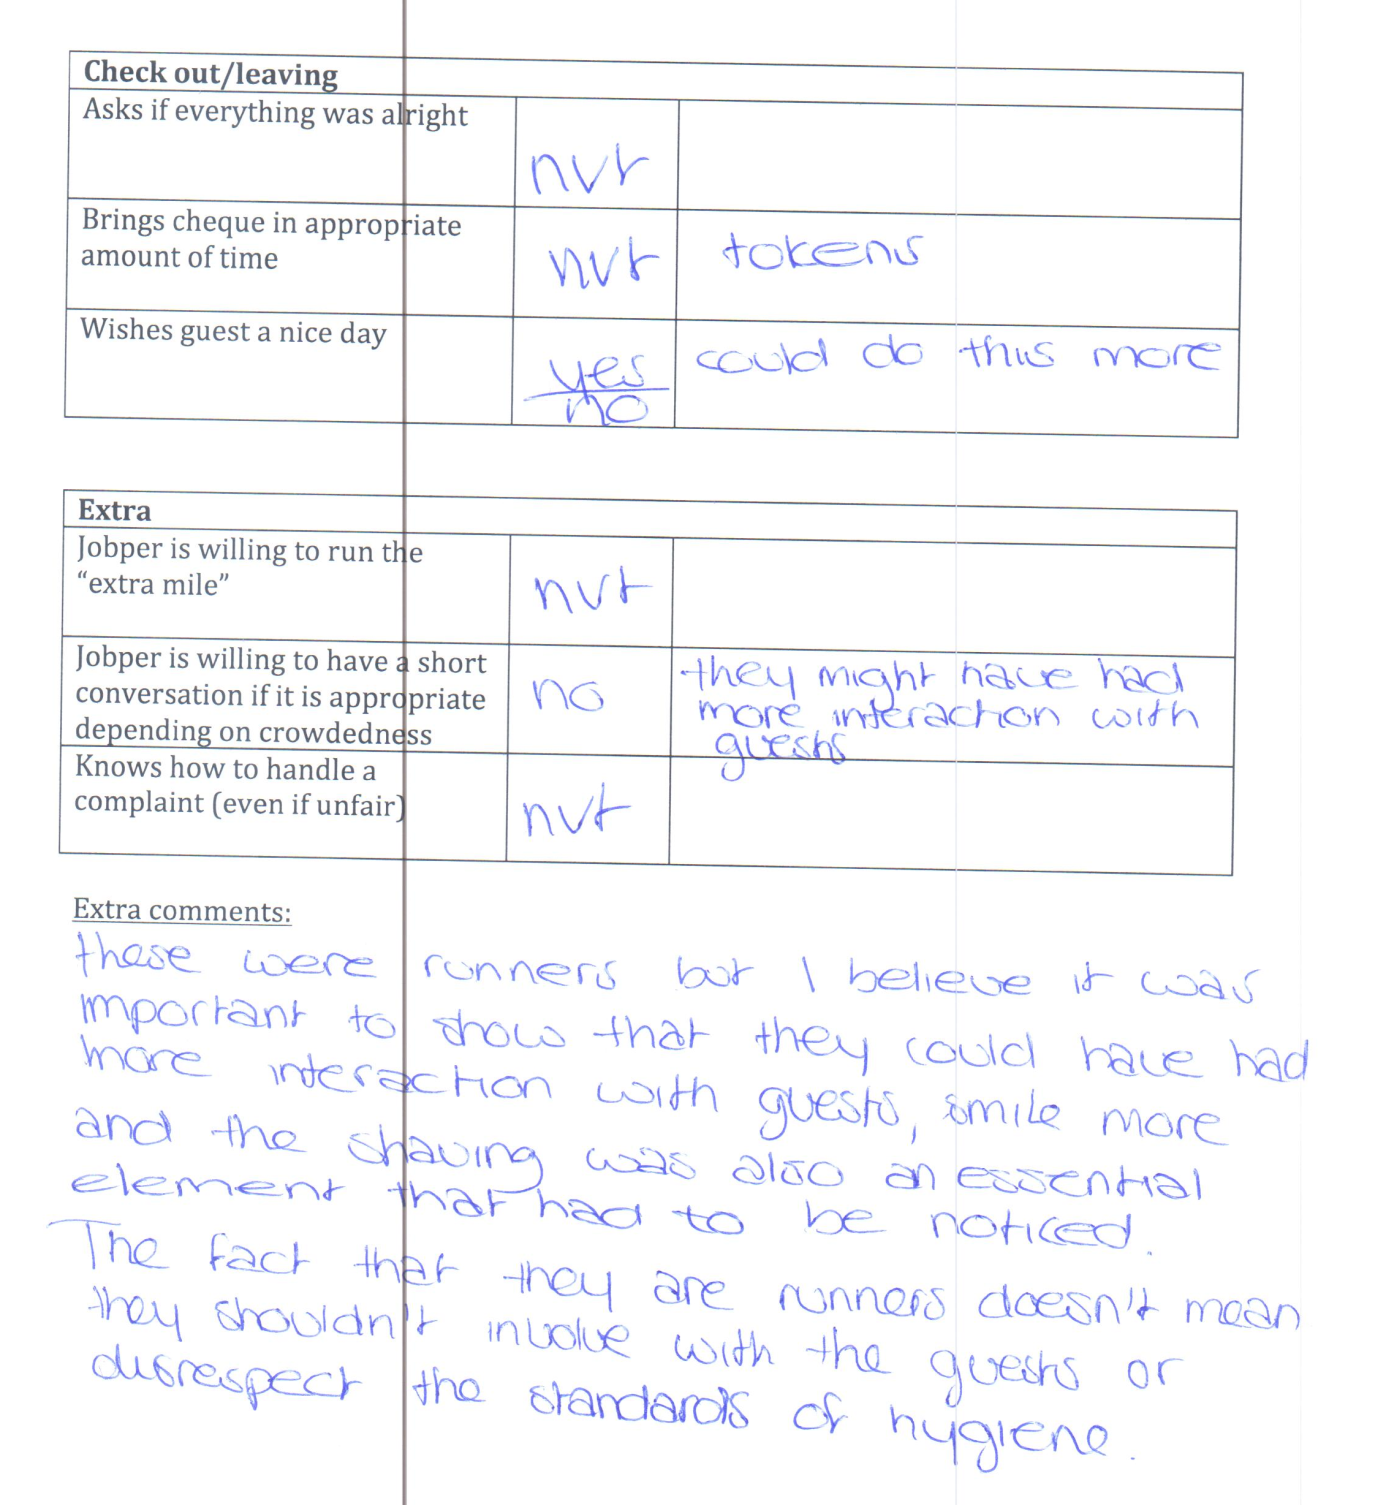 Check out/leaving
Asks if everything was alright
nvt
Brings cheque in appropriate
amount of time
nvt
tokens
Wishes guest a nice day
yes
no
could do this more
Extra
Jobper is willing to run the
“extra mile”
nvt
Jobper is willing to have a short
conversation if it is appropriate
depending on crowdedness
no
they might have had
more interaction with
guests
Knows how to handle a
complaint (even if unfair)
nvt
Extra comments:
these were runners but I believe it was
important to show that they could have had
more interaction with guests, smile more
and the shaving was also an essential
element that had to be noticed.
The fact that they are runners doesn't mean
they shouldn't involve with the guests or
disrespect the standards of hygiene.